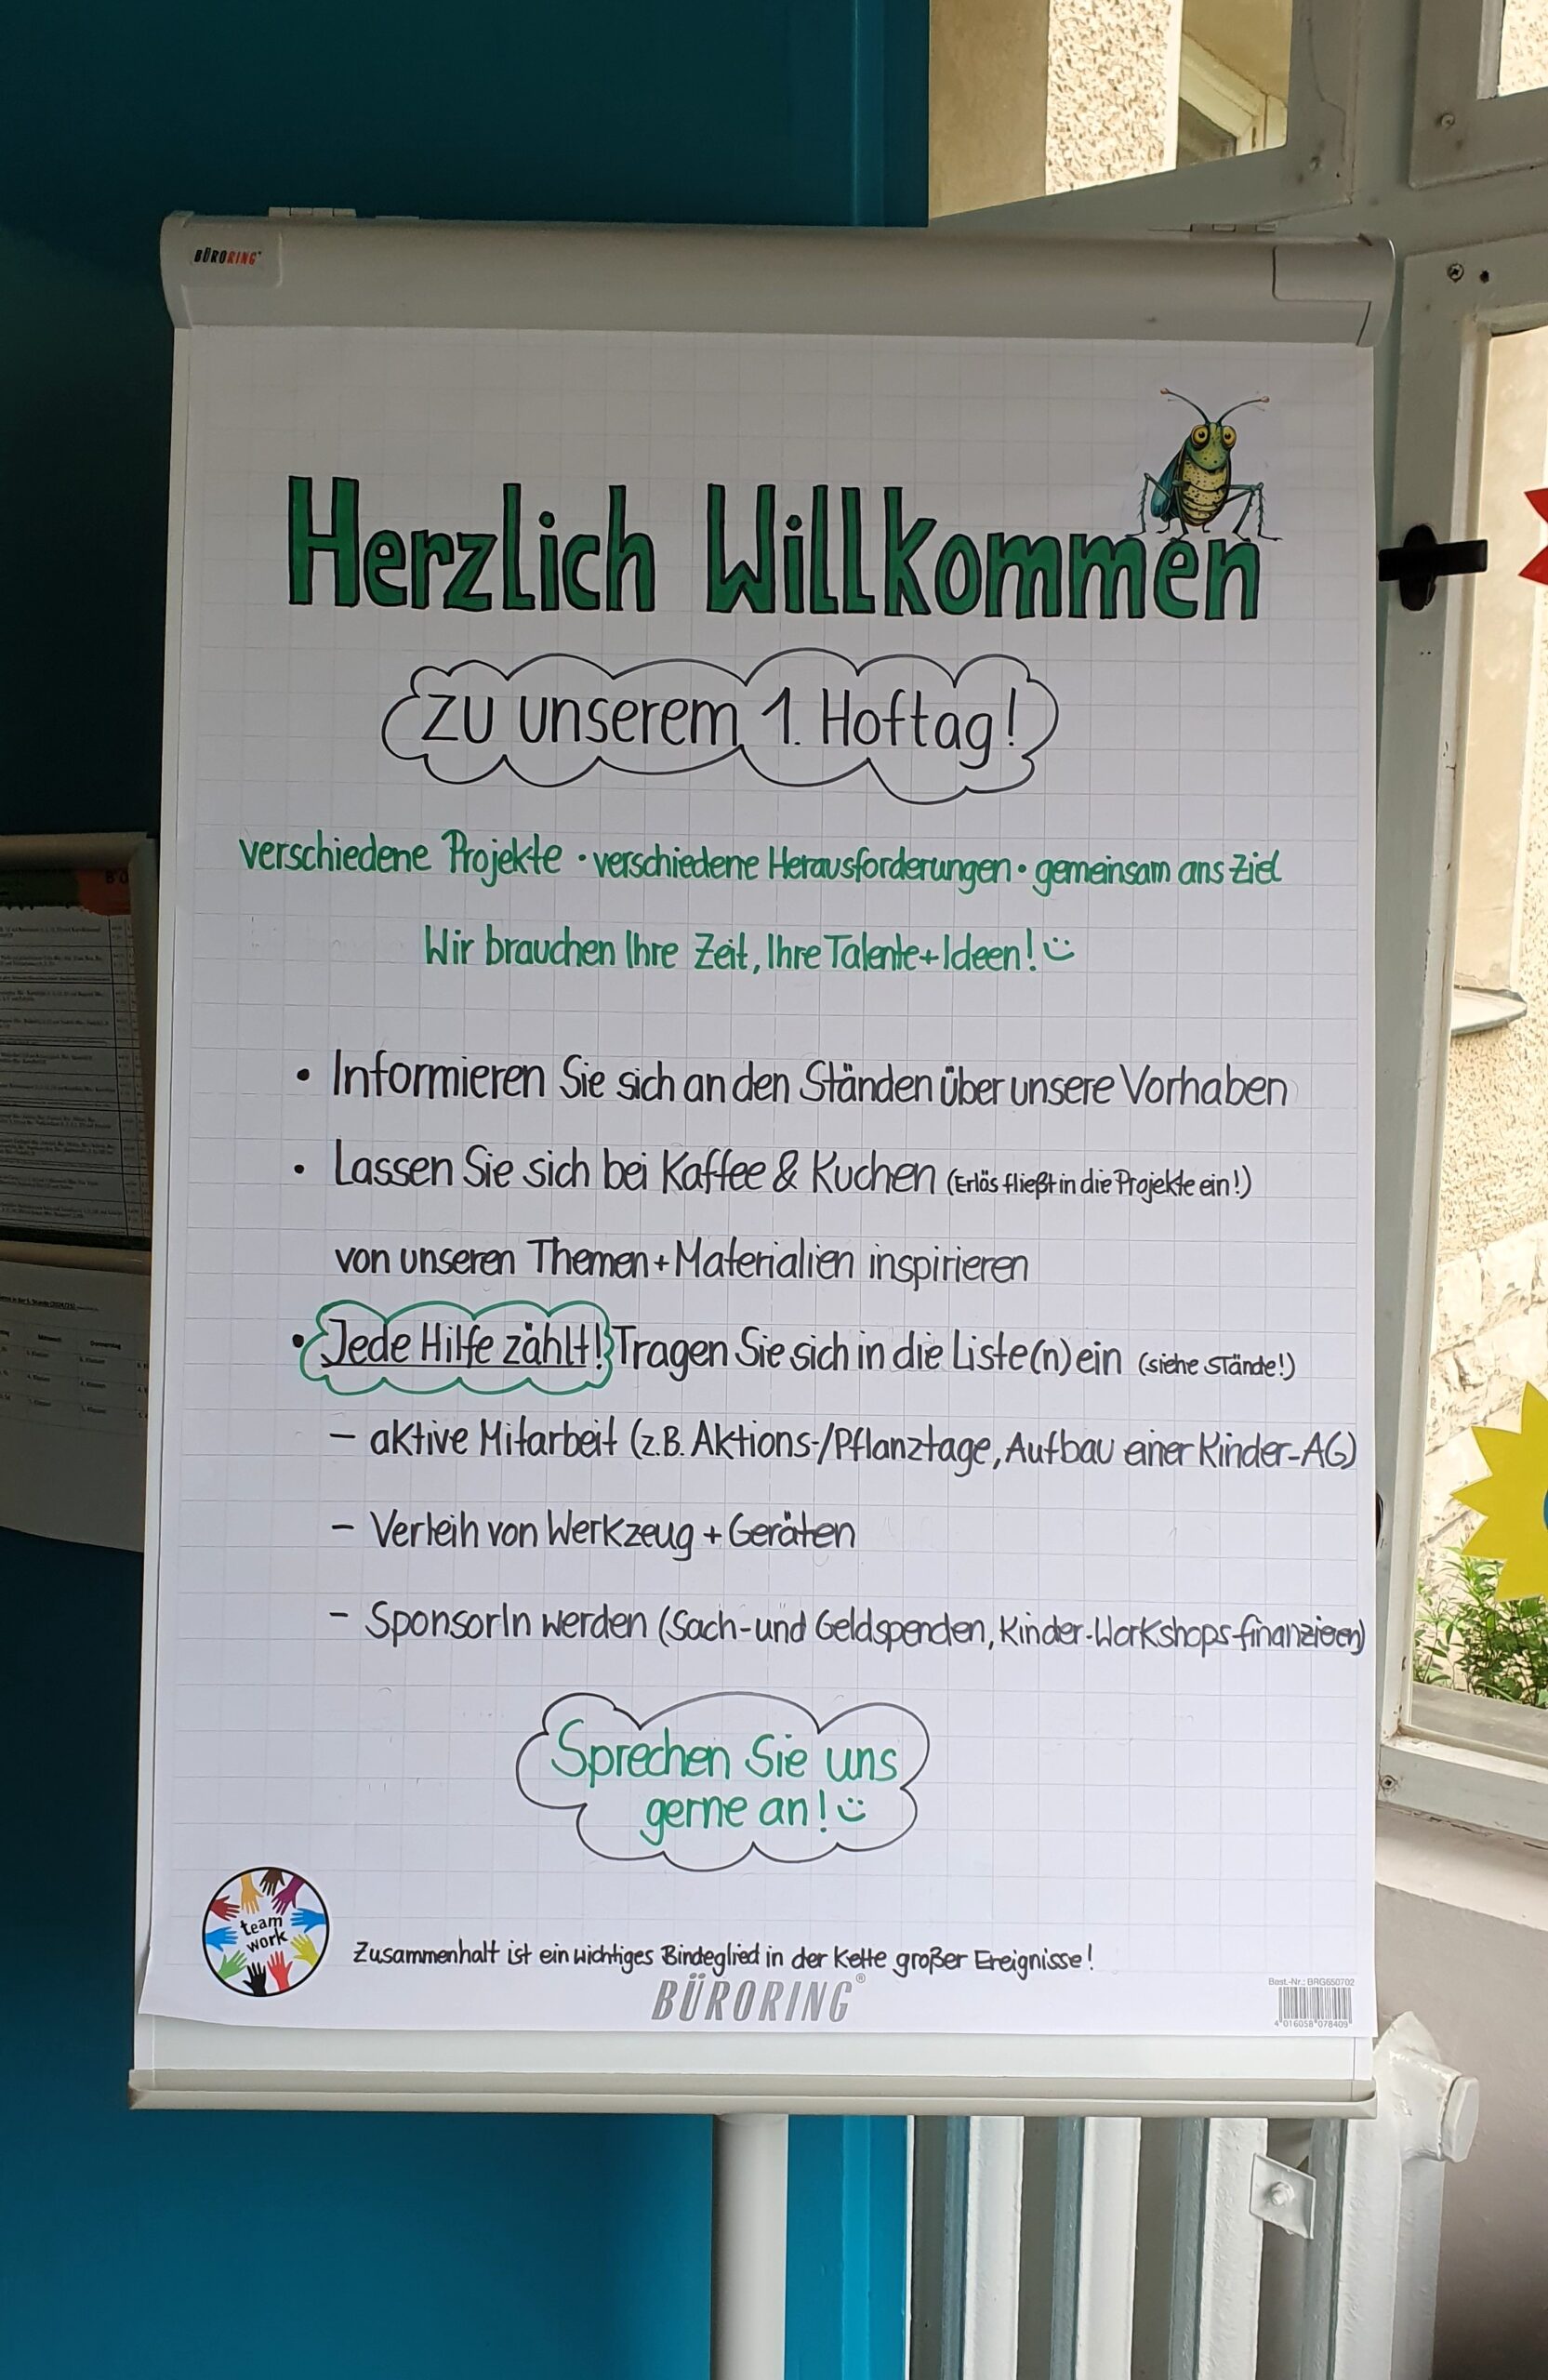 BÜRORING
Herzlich Willkommen
zu unserem 1. Hoftag!
verschiedene Projekte · verschiedene Herausforderungen · gemeinsam ans Ziel
Wir brauchen Ihre Zeit, Ihre Talente + Ideen! :)
• Informieren Sie sich an den Ständen über unsere Vorhaben
• Lassen Sie sich bei Kaffee & Kuchen (Erlös fließt in die Projekte ein!)
von unseren Themen + Materialien inspirieren
• Jede Hilfe zählt! Tragen Sie sich in die Liste(n) ein (siehe Stände!)
– aktive Mitarbeit (z.B. Aktions-/Pflanztage, Aufbau einer Kinder-AG)
– Verleih von Werkzeug + Geräten
– SponsorIn werden (Sach- und Geldspenden, Kinder-Workshops finanzieren)
Sprechen Sie uns
gerne an! :)
team
work
Zusammenhalt ist ein wichtiges Bindeglied in der Kette großer Ereignisse!
BÜRORING®
Best.-Nr.: BRG650702
4 016058 078409